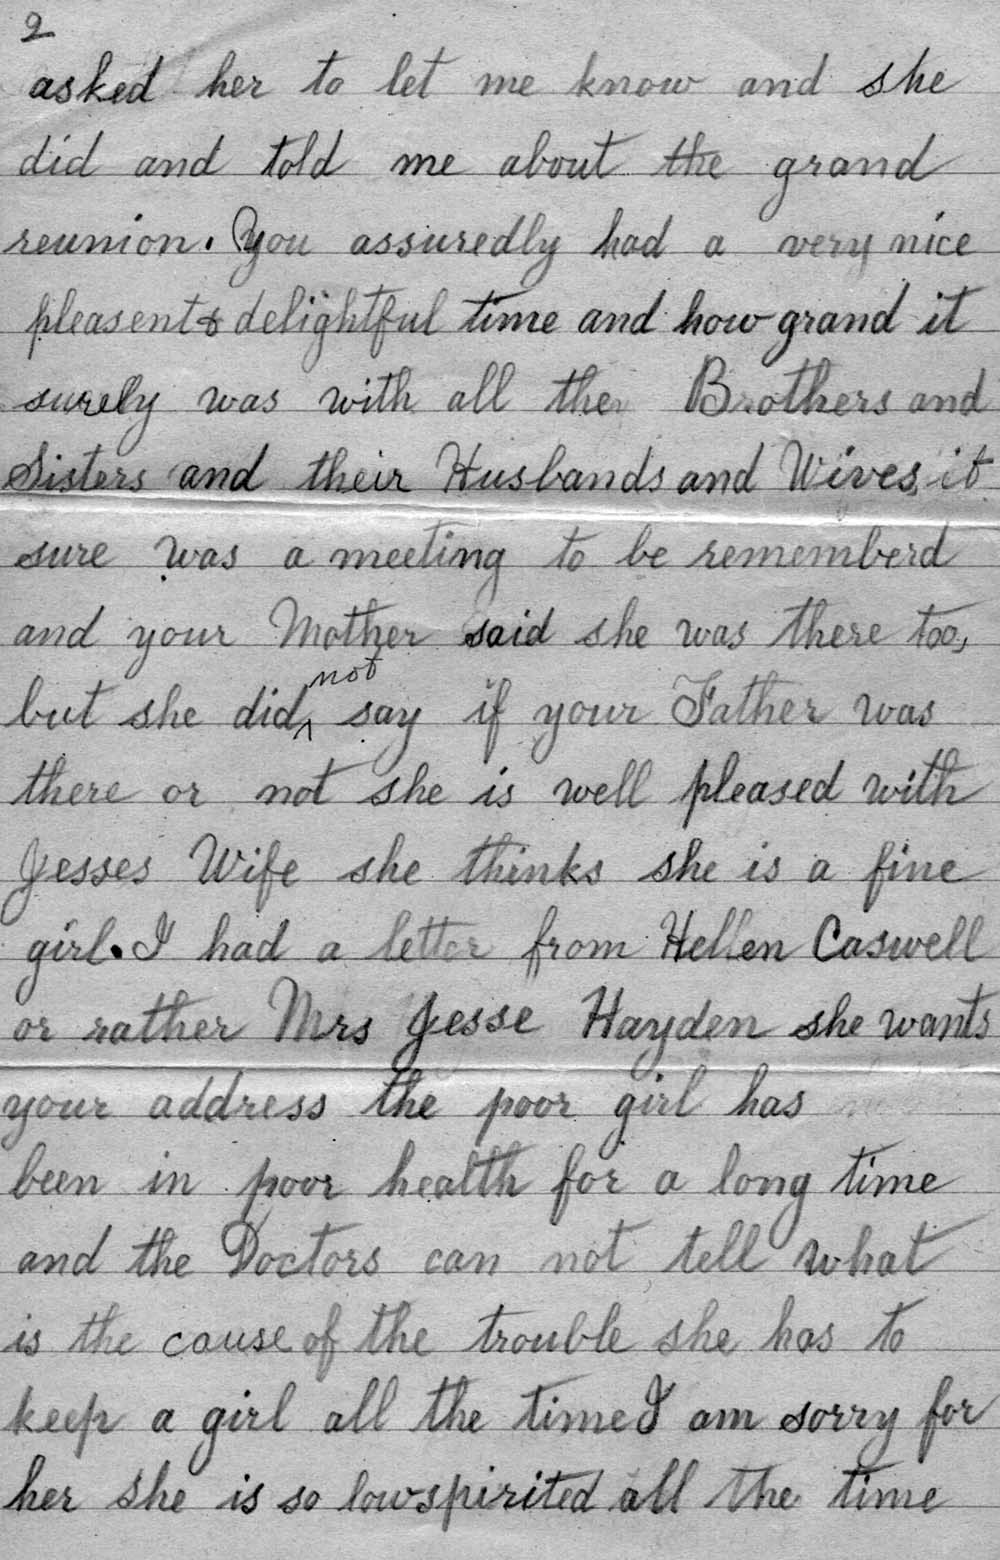 2
asked her to let me know and she
did and told me about the grand
reunion. You assuredly had a very nice
pleasent & delightful time and how grand it
surely was with all the Brothers and
Sisters and their Husbands and Wives, it
sure was a meeting to be rememberd
and your Mother said she was there too,
but she did not say if your Father was
there or not she is well pleased with
Jesses Wife she thinks she is a fine
girl. I had a letter from Hellen Caswell
or rather Mrs Jesse Hayden she wants
your address the poor girl has
been in poor health for a long time
and the Doctors can not tell what
is the cause of the trouble she has to
keep a girl all the time I am sorry for
her she is so lowspirited all the time